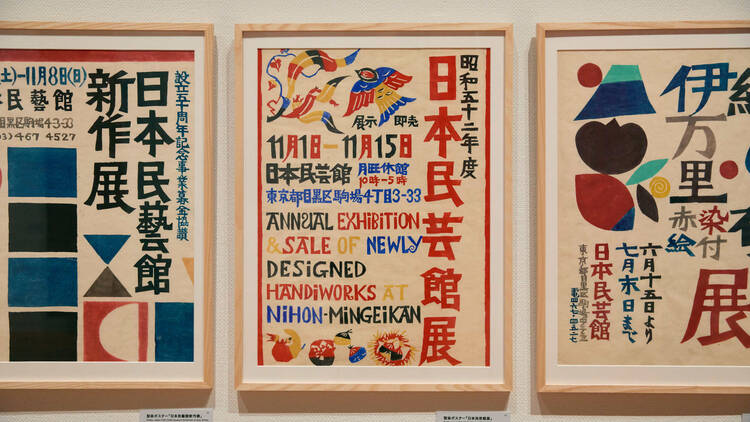 (土)−11月8日(日)
民藝館
目黒区駒場4-3-33
467 4527
設立五十周年記念事業募金協讃
日本民藝館
新作展
昭和五十二年度
日本民芸館展
展示 即売
11月1日−11月15日
日本民芸館 月曜休館
10時−5時
東京都目黒区駒場4丁目3-33
ANNUAL EXHIBITION
& SALE OF NEWLY
DESIGNED
HANDiWORKS AT
NiHON-MiNGEiKAN
伊万里
赤絵
染付
展
六月十五日より
七月末日まで
日本民芸館
東京都目黒区駒場